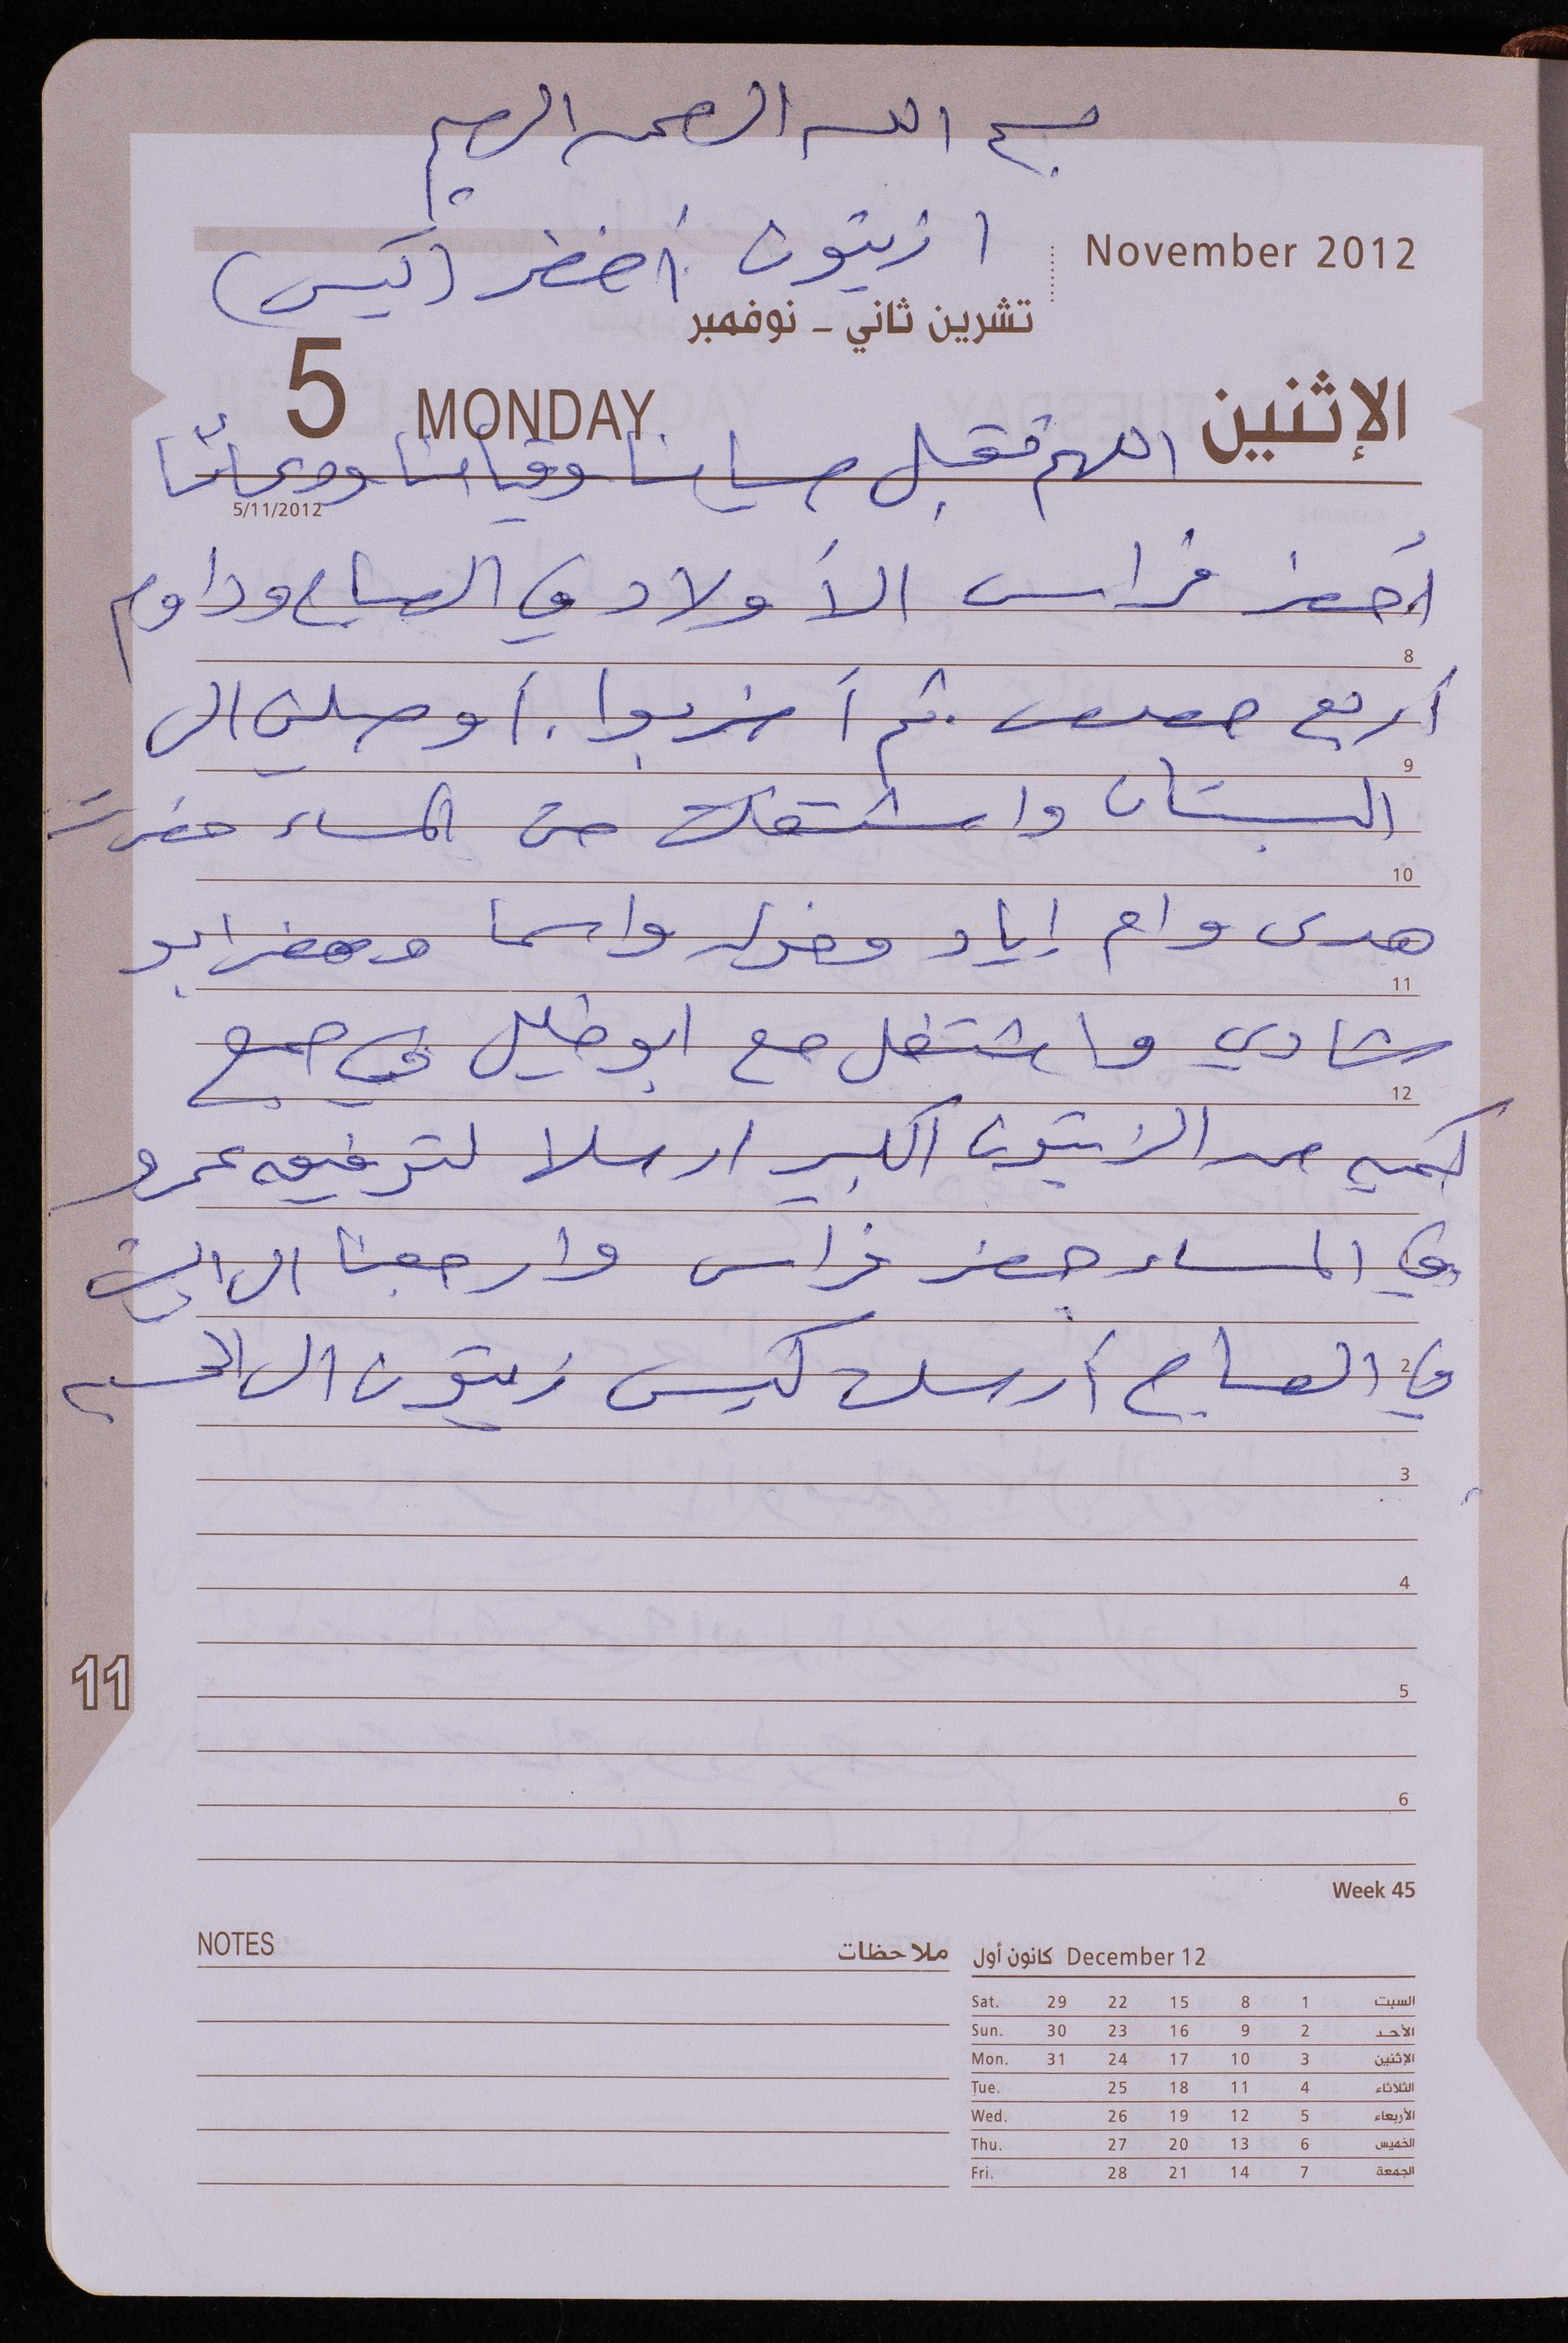 بسم الله الرحمن الرحيم
١ زيتون أخضر (كيس)
November 2012
تشرين ثاني - نوفمبر
5 MONDAY الإثنين
اللهم تقبل صيامنا وقيامنا ودعائنا
5/11/2012
أحضر فراس الأولاد في الصباح وداوم
8
أربع حصص. ثم أ ضربوا. أوصلني الى
9
البستان واشتغلت حتى المساء حضرت
10
هدى وام إياد وخوله واسما وحضر ابو
11
شادي واشتغل مع ابو خليل في جمع
12
كميه من الزيتون الكبير ارسلا لتوفيق عمرو
في المساء حضر فراس وارجعنا الى البيت
في الصباح أرسلت كيس زيتون الى
2
3
4
5
6
11
Week 45
NOTES ملاحظات
كانون أول December 12
Sat. 29 22 15 8 1 السبت
Sun. 30 23 16 9 2 الأحد
Mon. 31 24 17 10 3 الإثنين
Tue. 25 18 11 4 الثلاثاء
Wed. 26 19 12 5 الأربعاء
Thu. 27 20 13 6 الخميس
Fri. 28 21 14 7 الجمعة